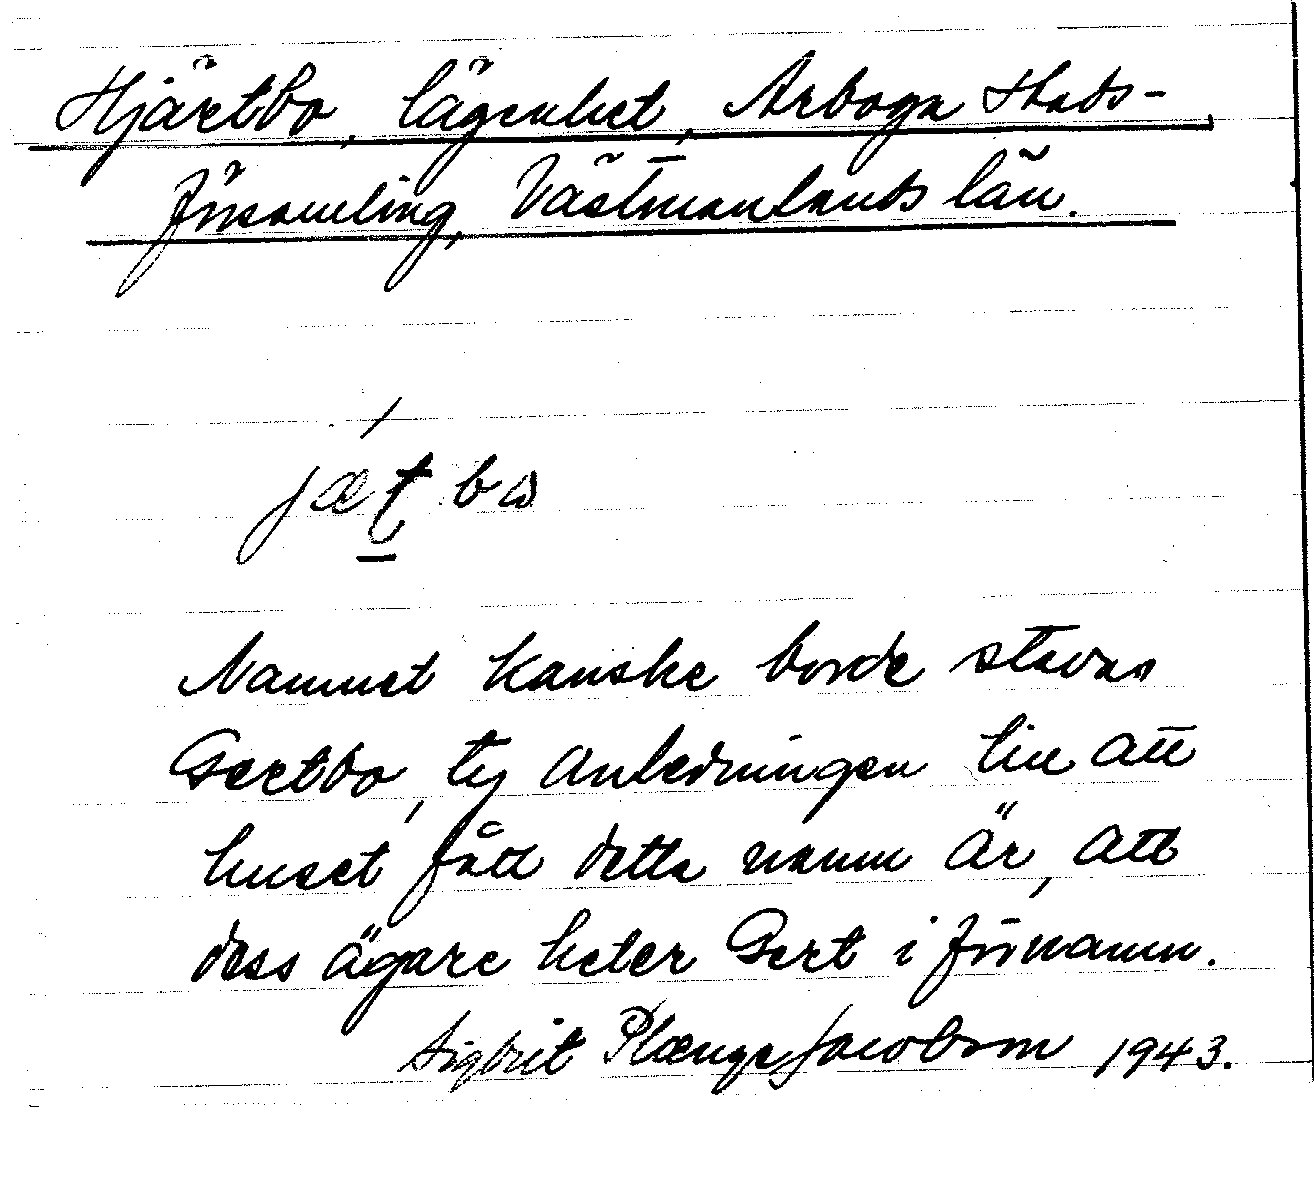 Hjärtbo, lägenhet, Arboga stads-
församling, Västmanlands län.
Namnet kanske borde stavas
Gertbo, ty anledningen till att
huset fått detta namn är, att
dess ägare heter Gert i förnamn.
Sigbrit Plænge Jacobson 1943.